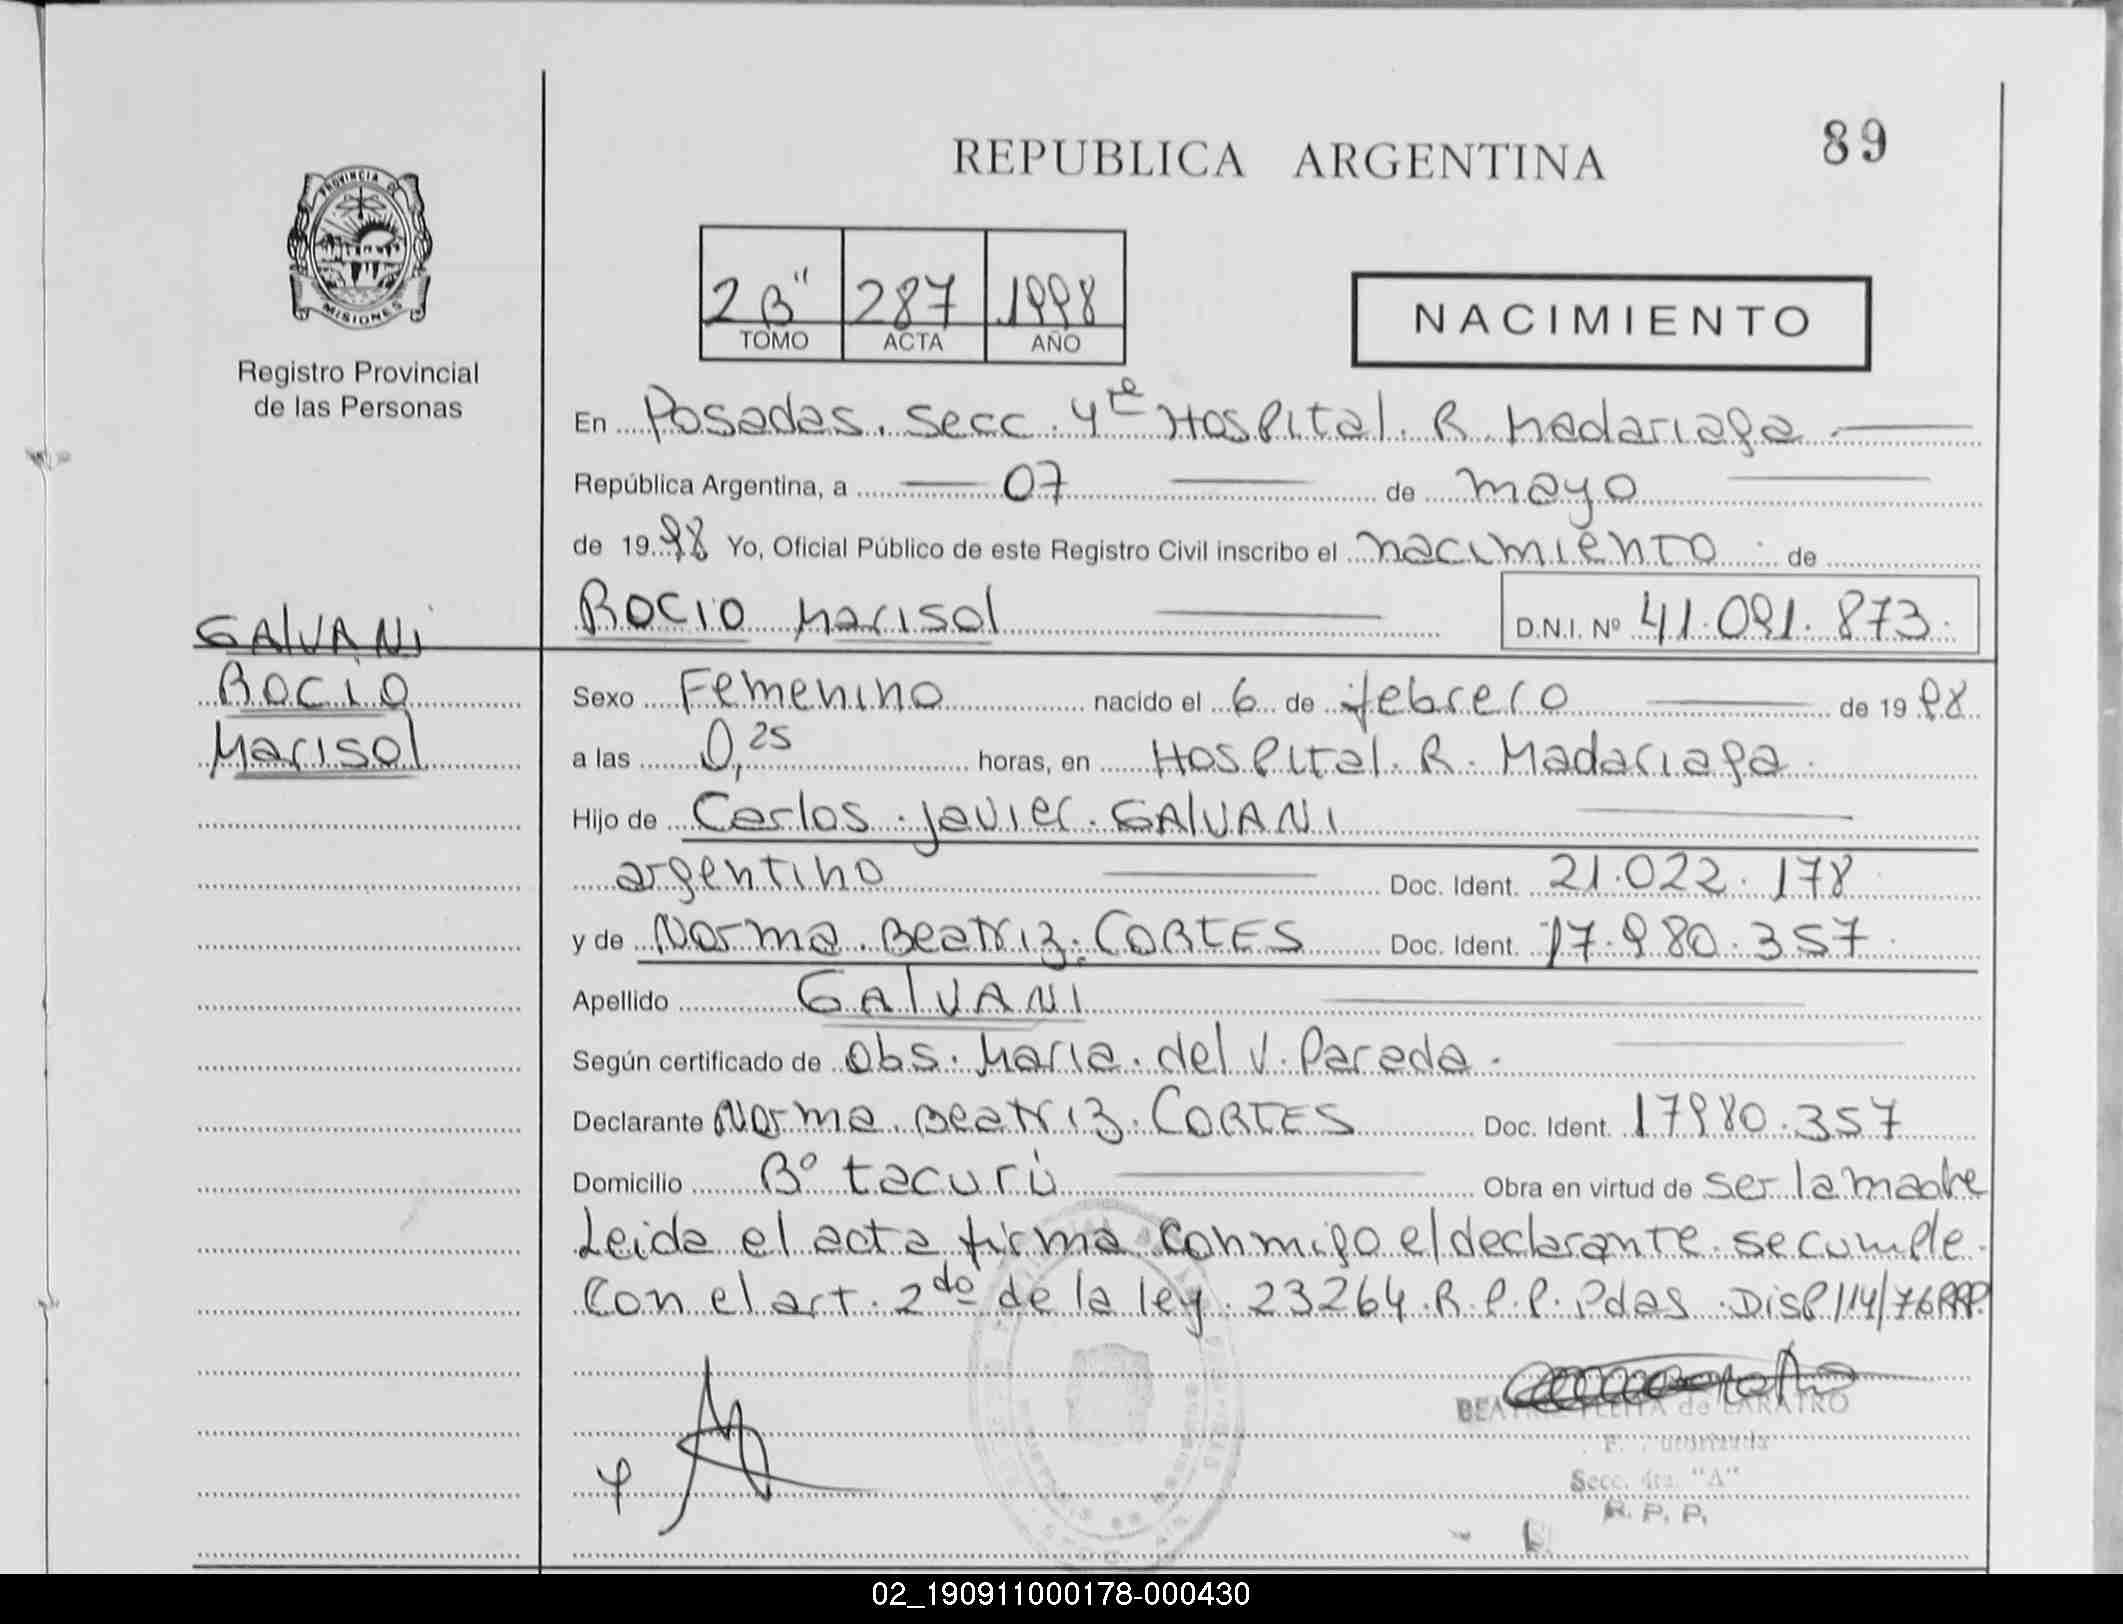 REPUBLICA ARGENTINA
89
PROVINCIA DE
MISIONES
Registro Provincial
de las Personas
2 B" 287 1998
TOMO ACTA AÑO
NACIMIENTO
En Posadas. Secc. 4te Hospital. R. Madariaga
República Argentina, a 07 de mayo
de 1998 Yo, Oficial Público de este Registro Civil inscribo el nacimiento de
ROCIO Marisol D.N.I. Nº 41.091.873.
GALVANI
ROCIO
Marisol
Sexo Femenino nacido el 6 de febrero de 1998
a las 0,25 horas, en Hospital. R. Madariaga.
Hijo de Carlos. Javier. GALVANI
argentino Doc. Ident. 21.022.178
y de Norma. Beatriz. CORTES Doc. Ident. 17.980.357.
Apellido GALVANI
Según certificado de Obs. Maria. del V. Pareda.
Declarante Norma. Beatriz. CORTES Doc. Ident. 17980.357
Domicilio Bº tacurú Obra en virtud de ser la madre
Leida el acta firma conmigo el declarante. se cumple.
Con el art. 2do de la ley. 23264. R. P. P. Pdas. Disp 114/76 RPP.
BEATRIZ de LARATRO
Secc. 4ta. "A"
R. P. P.
02_190911000178-000430